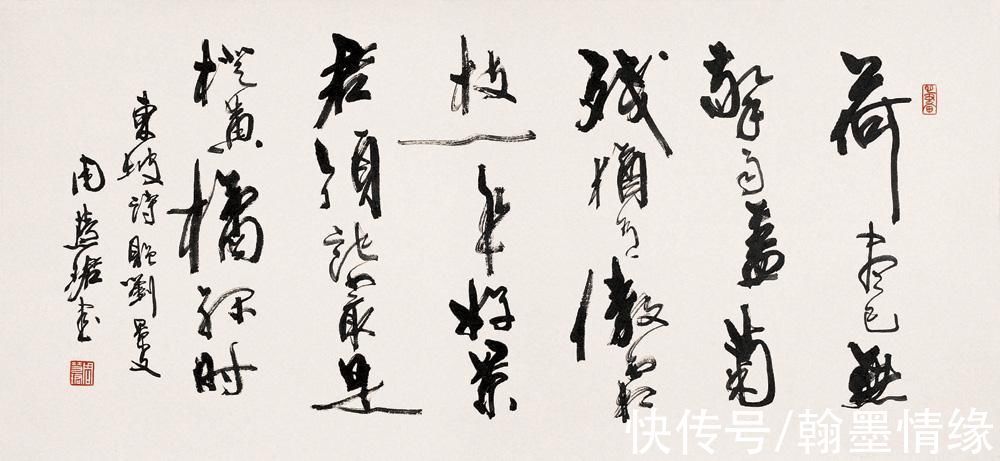 荷尽已無
擎雨蓋菊
残猶有傲霜
枝一年好景
君須記最是
橙黄橘绿时
東坡詩贈劉景文
周慧珺书
快传号/翰墨情缘